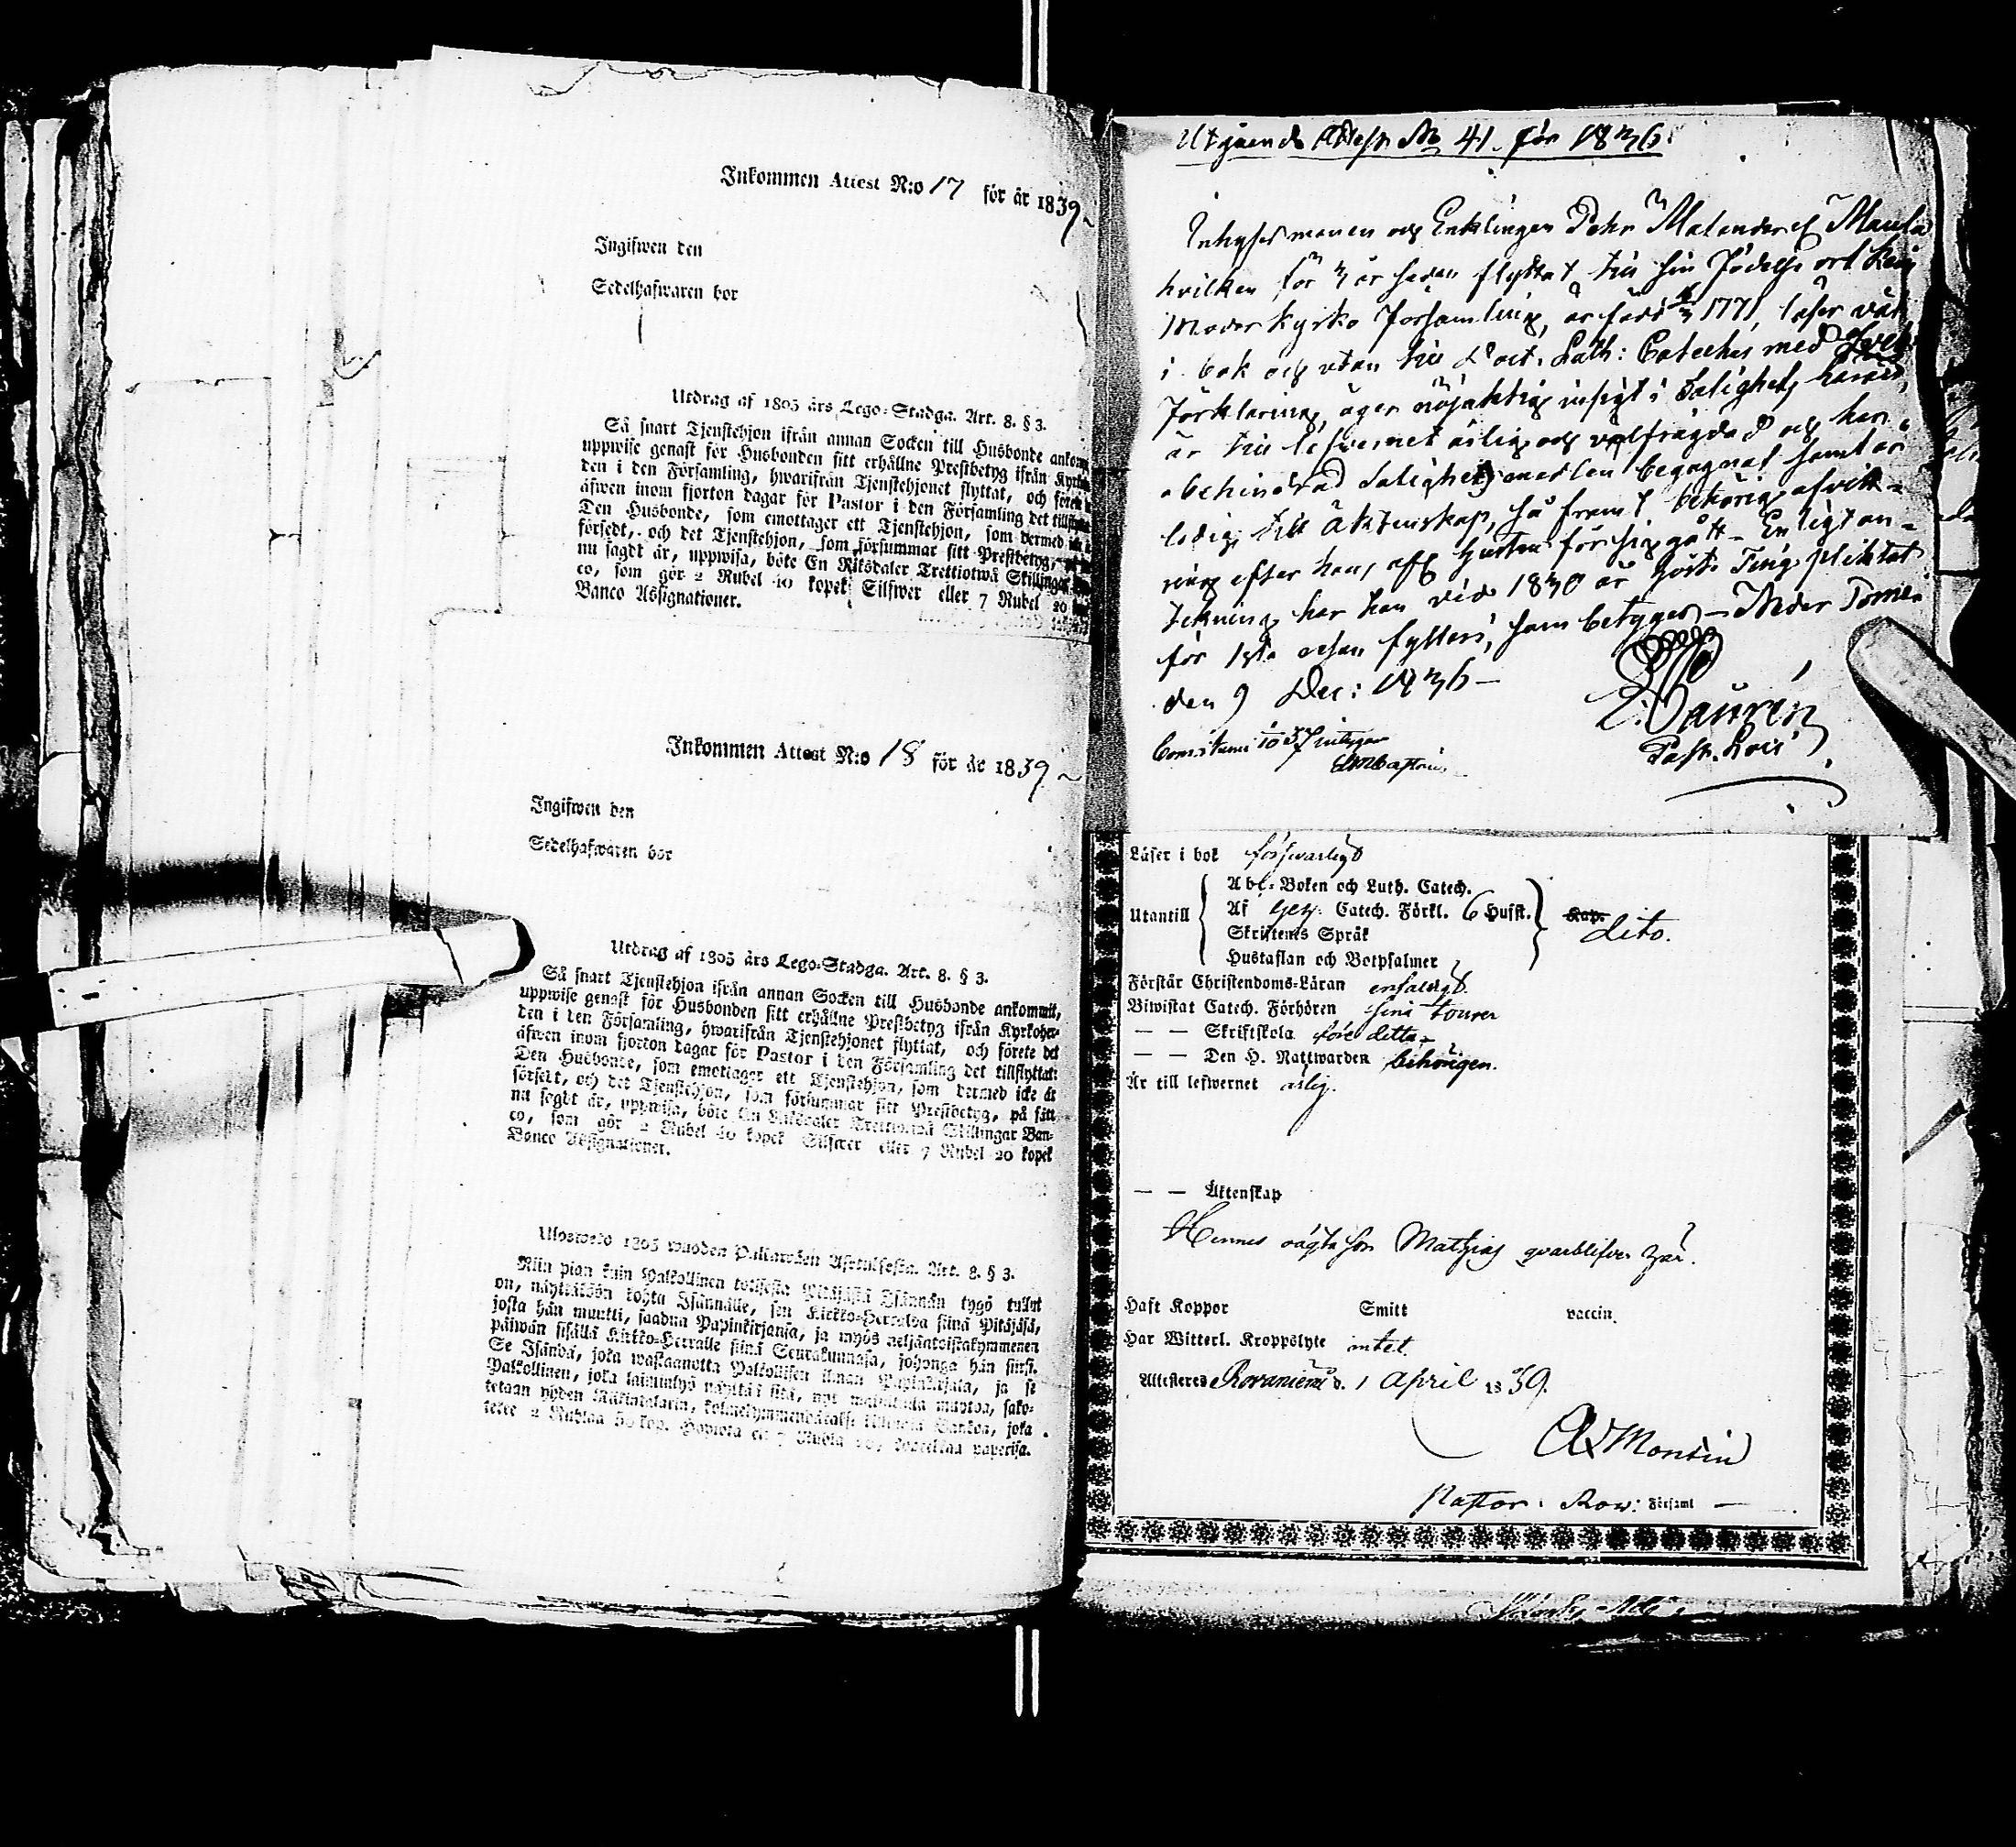 Inkommen Attest N:o 17 för år 1839
Ingifwen den
Sedelhafwaren bor
Utdrag af 1805 års Lego-Stadga. Art. 8. § 3.
Så snart Tjenstehjon ifrån annan Socken till Husbonde
uppwise genast för Husbonden sitt erhållne Prestbetyg ifrån
den i den Församling, hwarifrån Tjenstehjonet flyttat, och
äfwen inom fjorton dagar för Pastor i den Församling det
Den Husbonde, som emottager ett Tjenstehjon, som dermed
försedt, och det Tjenstehjon, som försummar sitt Prestbetyg,
nu sagdt är, uppwisa, böte En Riksdaler Trettiotwå Skillingar
co, som gör 2 Rubel 40 kopek Silfwer eller 7 Rubel 20
Banco Assignationer.
Inkommen Attest N:o 18 för år 1839
Ingifwen den
Sedelhafwaren bor
Utdrag af 1805 års Lego-Stadga. Art. 8. § 3.
Så snart Tjenstehjon ifrån annan Socken till Husbonde ankommit,
uppwise genast för Husbonden sitt erhållne Prestbetyg ifrån Kyrkoher-
den i den Församling, hwarifrån Tjenstehjonet flyttat, och förete det
äfwen inom fjorton dagar för Pastor i den Församling det tillflyttat:
Den Husbonde, som emottager ett Tjenstehjon, som dermed icke är
försedt, och det Tjenstehjon, som försummar sitt Prestbetyg, på sätt
nu sagdt är, uppwisa, böte En Riksdaler Trettiotwå Skillingar Ban-
co, som gör 2 Rubel 40 kopek Silfwer eller 7 Rubel 20 kopek
Banco Assignationer.
1805 wuoden Palkawäen Asetuksesta. Art. 8. § 3.
Niin pian kuin Palkollinen toisesta Pitäjästä Isännän tygö tullut
on, näyttäköön kohta Isännälle, sen Kirkko-Herralda siinä Pitäjäsä,
josta hän muutti, saadun Papinkirjansa, ja myös neljäntoistakymmenen
päiwän sisällä Kirkko-Herralle siinä Seurakunnasa, johonga hän siirsi.
Se Isändä, joka wastaanotta Palkollisen ilman Papinkirjata, ja se
Palkollinen, joka laiminlyö näyttää sitä, nyt mainitulla muotoa, sako-
tetaan yhden Riikintalarin, kolmekymmendäkaksi Killingiä Bankoa, joka
tekee 2 Ruplaa 40 kop. Hopiota eli 7 Rupla 20 kopeekkaa paperisa.
Utgående Attest No 41. för 1836.
Inhyses mannen och Enklingen Pehr Malander
hvilken för 3 år sedan flyttat till sin födelse ort Kemi
Moder kyrko församling, är född 1771, läser väl
i bok och utan till Doct. Luth: Cateches med
förklaring, äger nöjaktig insigt i Salighets
är till lefvernet ärlig och välfrägdad och har
obehindrad Salighets medlen begagnat samt är
ledig till äktenskap, så framt behörig afvitt-
ring efter hans aff Hustru för sig gått - Enligt an-
tekning har han vid 1830 år höste Ting pliktat
för 1sta resan fylleri, som betygas - Neder Torneå
den 9 Dec: 1836 -
Past.
Läser i bok försvarligt
Utantill
Abc-Boken och Luth. Catech.
Af Catech. Förkl. 6 Hufst.
Skriftenes Språk
Hustaflan och Botpsalmer
Kap.
dito.
Förstår Christendoms-Läran enfaldigt
Biwistat Catech. Förhören sine tourer
— — Skriftskola före detta
— — Den H. Nattwarden behörigen.
Är till lefwernet ärlig.
— — Äktenskap
Hennes oägta son Mathias qvarblifver här.
Haft Koppor Smitt vaccin.
Har Witterl. Kroppslyte intet
Attesteras Rovaniemi d. 1 April 1839.
Pastor: Row: Församl